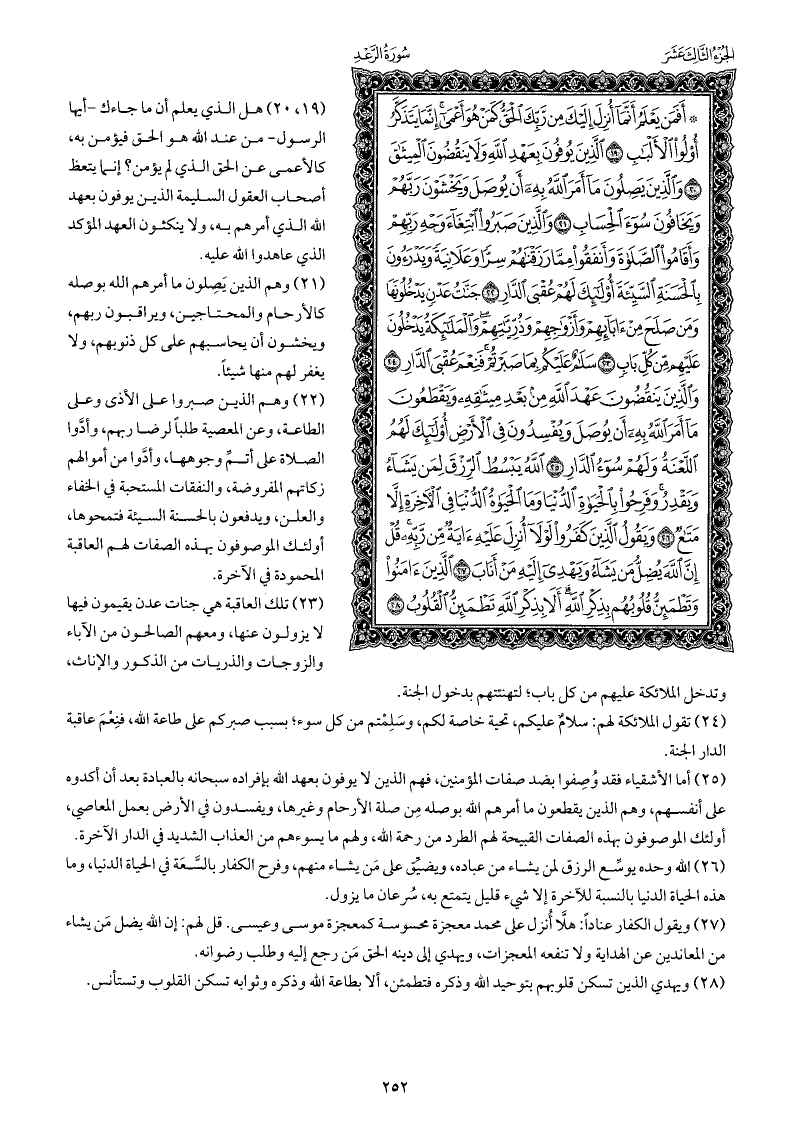 الجزء الثالث عشر
سورة الرعد
۞ أَفَمَن يَعْلَمُ أَنَّمَا أُنزِلَ إِلَيْكَ مِن رَّبِّكَ الْحَقُّ كَمَنْ هُوَ أَعْمَىٰ إِنَّمَا يَتَذَكَّرُ
أُولُوا الْأَلْبَابِ ١٩ الَّذِينَ يُوفُونَ بِعَهْدِ اللَّهِ وَلَا يَنقُضُونَ الْمِيثَاقَ
٢٠ وَالَّذِينَ يَصِلُونَ مَا أَمَرَ اللَّهُ بِهِ أَن يُوصَلَ وَيَخْشَوْنَ رَبَّهُمْ
وَيَخَافُونَ سُوءَ الْحِسَابِ ٢١ وَالَّذِينَ صَبَرُوا ابْتِغَاءَ وَجْهِ رَبِّهِمْ
وَأَقَامُوا الصَّلَوٰةَ وَأَنفَقُوا مِمَّا رَزَقْنَٰهُمْ سِرًّا وَعَلَانِيَةً وَيَدْرَءُونَ
بِالْحَسَنَةِ السَّيِّئَةَ أُولَٰئِكَ لَهُمْ عُقْبَى الدَّارِ ٢٢ جَنَّٰتُ عَدْنٍ يَدْخُلُونَهَا
وَمَن صَلَحَ مِنْ ءَابَائِهِمْ وَأَزْوَٰجِهِمْ وَذُرِّيَّٰتِهِمْ وَالْمَلَٰئِكَةُ يَدْخُلُونَ
عَلَيْهِم مِّن كُلِّ بَابٍ ٢٣ سَلَٰمٌ عَلَيْكُم بِمَا صَبَرْتُمْ فَنِعْمَ عُقْبَى الدَّارِ ٢٤
وَالَّذِينَ يَنقُضُونَ عَهْدَ اللَّهِ مِن بَعْدِ مِيثَٰقِهِ وَيَقْطَعُونَ
مَا أَمَرَ اللَّهُ بِهِ أَن يُوصَلَ وَيُفْسِدُونَ فِي الْأَرْضِ أُولَٰئِكَ لَهُمُ
اللَّعْنَةُ وَلَهُمْ سُوءُ الدَّارِ ٢٥ اللَّهُ يَبْسُطُ الرِّزْقَ لِمَن يَشَاءُ
وَيَقْدِرُ وَفَرِحُوا بِالْحَيَوٰةِ الدُّنْيَا وَمَا الْحَيَوٰةُ الدُّنْيَا فِي الْآخِرَةِ إِلَّا
مَتَٰعٌ ٢٦ وَيَقُولُ الَّذِينَ كَفَرُوا لَوْلَا أُنزِلَ عَلَيْهِ ءَايَةٌ مِّن رَّبِّهِ قُلْ
إِنَّ اللَّهَ يُضِلُّ مَن يَشَاءُ وَيَهْدِي إِلَيْهِ مَنْ أَنَابَ ٢٧ الَّذِينَ ءَامَنُوا
وَتَطْمَئِنُّ قُلُوبُهُم بِذِكْرِ اللَّهِ أَلَا بِذِكْرِ اللَّهِ تَطْمَئِنُّ الْقُلُوبُ ٢٨
(١٩، ٢٠) هل الذي يعلم أن ما جاءك -أيها
الرسول- من عند الله هو الحق فيؤمن به،
كالأعمى عن الحق الذي لم يؤمن؟ إنما يتعظ
أصحاب العقول السليمة الذين يوفون بعهد
الله الذي أمرهم به، ولا ينكثون العهد المؤكد
الذي عاهدوا الله عليه.
(٢١) وهم الذين يَصِلون ما أمرهم الله بوصله
كالأرحام والمحتاجين، ويراقبون ربهم،
ويخشون أن يحاسبهم على كل ذنوبهم، ولا
يغفر لهم منها شيئاً.
(٢٢) وهم الذين صبروا على الأذى وعلى
الطاعة، وعن المعصية طلباً لرضا ربهم، وأدَّوا
الصلاة على أتمِّ وجوهها، وأدَّوا من أموالهم
زكاتهم المفروضة، والنفقات المستحبة في الخفاء
والعلن، ويدفعون بالحسنة السيئة فتمحوها،
أولئك الموصوفون بهذه الصفات لهم العاقبة
المحمودة في الآخرة.
(٢٣) تلك العاقبة هي جنات عدن يقيمون فيها
لا يزولون عنها، ومعهم الصالحون من الآباء
والزوجات والذريات من الذكور والإناث،
وتدخل الملائكة عليهم من كل باب؛ لتهنئتهم بدخول الجنة.
(٢٤) تقول الملائكة لهم: سلامٌ عليكم، تحية خاصة لكم، وسَلِمْتم من كل سوء؛ بسبب صبركم على طاعة الله، فنِعْمَ عاقبة
الدار الجنة.
(٢٥) أما الأشقياء فقد وُصِفوا بضد صفات المؤمنين، فهم الذين لا يوفون بعهد الله بإفراده سبحانه بالعبادة بعد أن أكدوه
على أنفسهم، وهم الذين يقطعون ما أمرهم الله بوصله مِن صلة الأرحام وغيرها، ويفسدون في الأرض بعمل المعاصي،
أولئك الموصوفون بهذه الصفات القبيحة لهم الطرد من رحمة الله، ولهم ما يسوءهم من العذاب الشديد في الدار الآخرة.
(٢٦) الله وحده يوسِّع الرزق لمن يشاء من عباده، ويضيِّق على مَن يشاء منهم، وفرح الكفار بالسَّعَة في الحياة الدنيا، وما
هذه الحياة الدنيا بالنسبة للآخرة إلا شيء قليل يتمتع به، سُرعان ما يزول.
(٢٧) ويقول الكفار عناداً: هلَّا أُنزل على محمد معجزة محسوسة كمعجزة موسى وعيسى. قل لهم: إن الله يضل مَن يشاء
من المعاندين عن الهداية ولا تنفعه المعجزات، ويهدي إلى دينه الحق مَن رجع إليه وطلب رضوانه.
(٢٨) ويهدي الذين تسكن قلوبهم بتوحيد الله وذكره فتطمئن، ألا بطاعة الله وذكره وثوابه تسكن القلوب وتستأنس.
٢٥٢